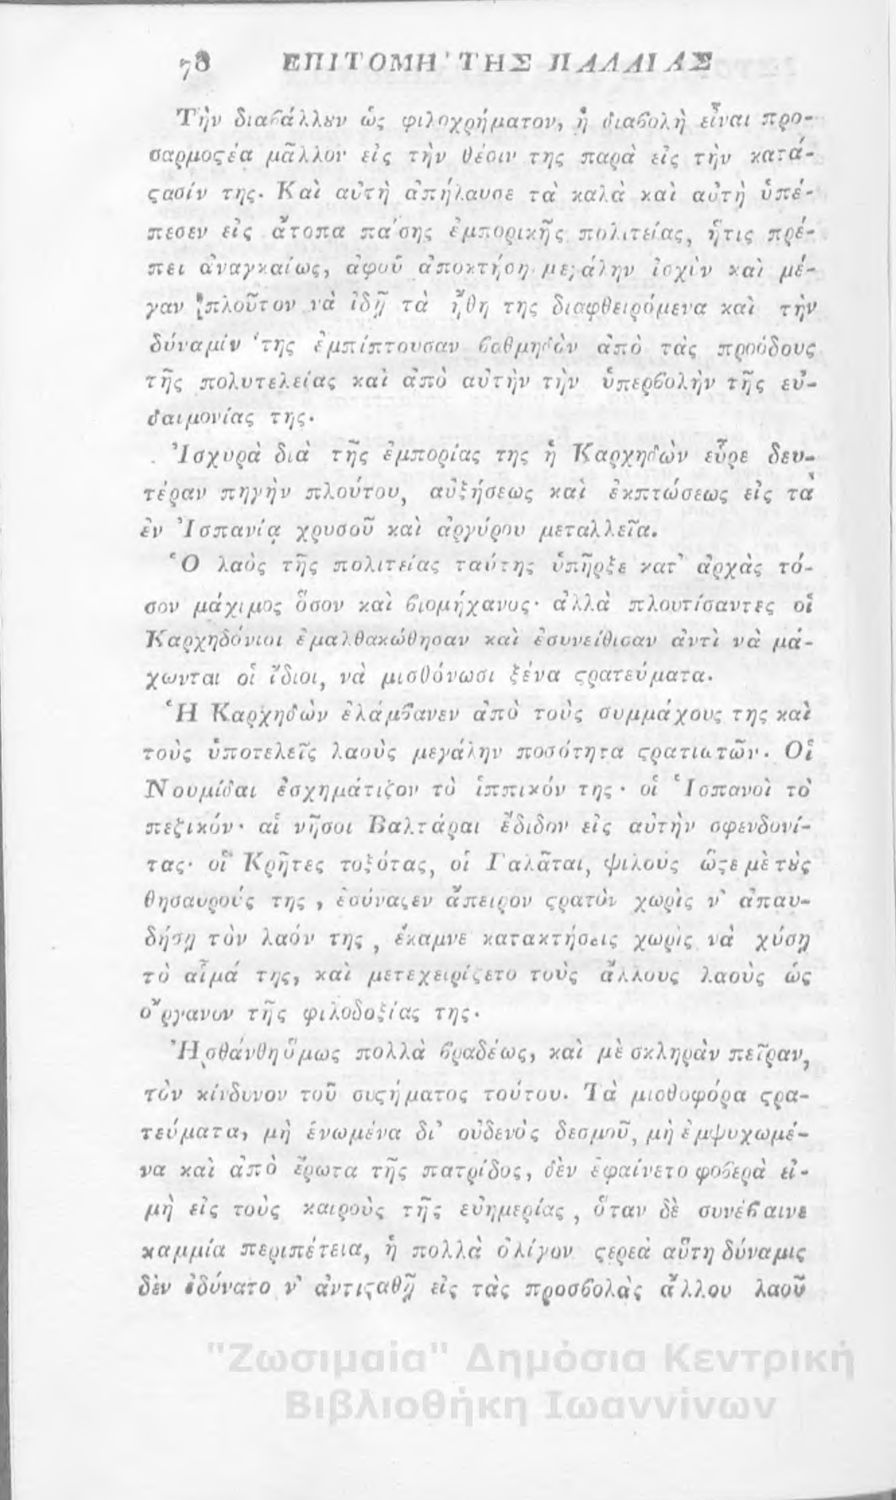 78 ΕΠΙΤΟΜΗ ΤΗΣ ΠΑΛΑΙΑΣ
Τὴν διαβάλλȣν ὡς φιλοχρήματον, ἡ διαβολὴ εἶναι προ-
σαρμοϛέα μᾶλλον εἰς τὴν θέσιν της παρὰ εἰς τὴν κατά-
ϛασίν της· Καὶ αὐτὴ ἀπήλαυσε τὰ καλὰ καὶ αὐτὴ ὑπέ-
πεσεν εἰς ἄτοπα πάσης ἐμπορικῆς πολιτείας, ἥτις πρέ-
πει ἀναγκαίως, ἀφοῦ ἀποκτήσῃ μεγάλην ἰσχὺν καὶ μέ-
γαν πλοῦτον νὰ ἰδῇ τὰ ἤθη της διαφθειρόμενα καὶ τὴν
δύναμίν της ἐμπίπτουσαν βαθμηδὸν ἀπὸ τὰς προόδους
τῆς πολυτελείας καὶ ἀπὸ αὐτὴν τὴν ὑπερβολὴν τῆς εὐ-
δαιμονίας της·
Ἰσχυρὰ διὰ τῆς ἐμπορίας της ἡ Καρχηδὼν εὗρε δευ-
τέραν πηγὴν πλούτου, αὐξήσεως καὶ ἐκπτώσεως εἰς τὰ
ἐν Ἰσπανίᾳ χρυσοῦ καὶ ἀργύρου μεταλλεῖα.
Ὁ λαὸς τῆς πολιτείας ταύτης ὑπῆρξε κατ' ἀρχὰς τό-
σον μάχιμος ὅσον καὶ βιομήχανος· ἀλλὰ πλουτίσαντες οἱ
Καρχηδόνιοι ἐμαλθακώθησαν καὶ ἐσυνείθισαν ἀντὶ νὰ μά-
χωνται οἱ ἴδιοι, νὰ μισθόνωσι ξένα ϛρατεύματα.
Ἡ Καρχηδὼν ἐλάμβανεν ἀπὸ τοὺς συμμάχους της καὶ
τοὺς ὑποτελεῖς λαοὺς μεγάλην ποσότητα ϛρατιωτῶν. Οἱ
Νουμίδαι ἐσχημάτιζον τὸ ἱππικόν της· οἱ Ἱσπανοὶ τὸ
πεζικόν· αἱ νῆσοι Βαλτάραι ἔδιδον εἰς αὐτὴν σφενδονί-
τας· οἱ Κρῆτες τοξότας, οἱ Γαλᾶται, ψιλοὺς ὥϛε μὲ τȣς
θησαυρούς της, ἐσύναζεν ἄπειρον ϛρατὸν χωρὶς ν' ἀπαυ-
δήσῃ τὸν λαόν της, ἔκαμνε κατακτήσεις χωρὶς νὰ χύσῃ
τὸ αἷμά της, καὶ μετεχειρίζετο τοὺς ἄλλους λαοὺς ὡς
ὄργανον τῆς φιλοδοξίας της.
Ἠσθάνθη ὅμως πολλὰ βραδέως, καὶ μὲ σκληρὰν πεῖραν,
τὸν κίνδυνον τοῦ συϛήματος τούτου. Τὰ μισθοφόρα ϛρα-
τεύματα, μὴ ἑνωμένα δι' οὐδενὸς δεσμοῦ, μὴ ἐμψυχωμέ-
να καὶ ἀπὸ ἔρωτα τῆς πατρίδος, δὲν ἐφαίνετο φοβερὰ εἰ-
μὴ εἰς τοὺς καιροὺς τῆς εὐημερίας, ὅταν δὲ συνέβαινε
καμμία περιπέτεια, ἡ πολλὰ ὀλίγον ϛερεὰ αὕτη δύναμις
δὲν ἐδύνατο ν' ἀντιϛαθῇ εἰς τὰς προσβολὰς ἄλλου λαοῦ
"Ζωσιμαία" Δημόσια Κεντρική
Βιβλιοθήκη Ιωαννίνων